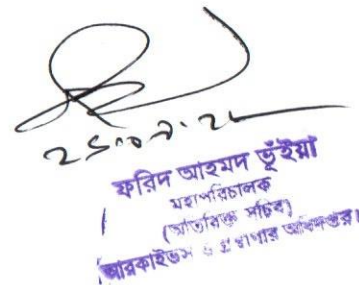 ফরিদ আহমদ ভূঁইয়া
মহাপরিচালক
(অতিরিক্ত সচিব)
আরকাইভস ও গ্রন্থাগার অধিদপ্তর।